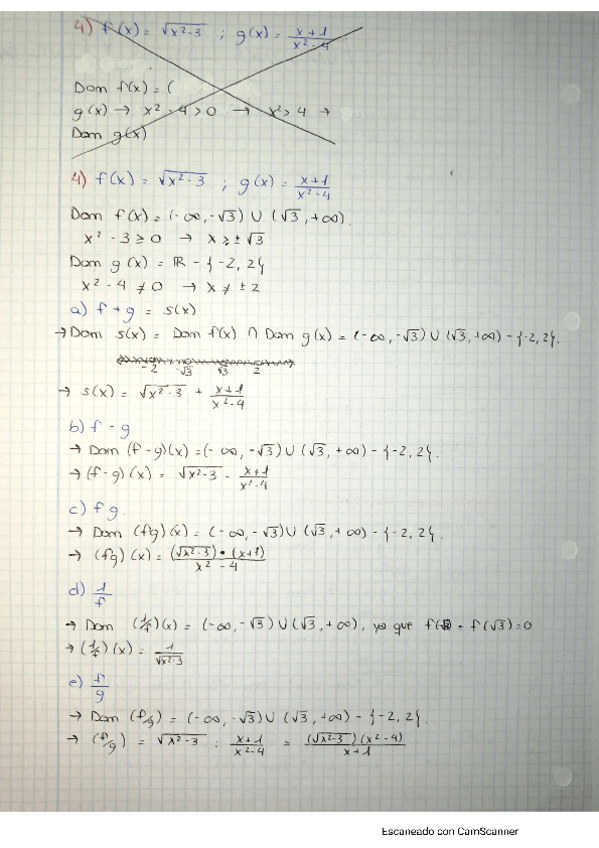 4) f(x) = √x²-3 ; g(x) = x+1/x²-4
Dom f(x) = (
g(x) → x² - 4 > 0 → x² > 4 →
Dom g(x)
4) f(x) = √x²-3 ; g(x) = x+1/x²-4
Dom f(x) = (-∞, -√3) ∪ (√3, +∞).
x² - 3 ≥ 0 → x ≥ ±√3
Dom g(x) = ℝ - {-2, 2}
x² - 4 ≠ 0 → x ≠ ±2
a) f + g = s(x)
→ Dom s(x) = Dom f(x) ∩ Dom g(x) = (-∞, -√3) ∪ (√3, +∞) - {-2, 2}.
-2 -√3 √3 2
→ s(x) = √x²-3 + x+1/x²-4
b) f - g
→ Dom (f - g)(x) = (-∞, -√3) ∪ (√3, +∞) - {-2, 2}.
→ (f-g)(x) = √x²-3 - x+1/x²-4
c) f g.
→ Dom (fg)(x) = (-∞, -√3) ∪ (√3, +∞) - {-2, 2}.
→ (fg)(x) = (√x²-3) • (x+1)/x² - 4
d) 1/f
→ Dom (1/f)(x) = (-∞, -√3) ∪ (√3, +∞), ya que f(√3) = 0
→ (1/f)(x) = 1/√x²-3
e) f/g
→ Dom (f/g) = (-∞, -√3) ∪ (√3, +∞) - {-2, 2}.
→ (f/g) = √x²-3 : x+1/x²-4 = (√x²-3)(x²-4)/x+1
Escaneado con CamScanner